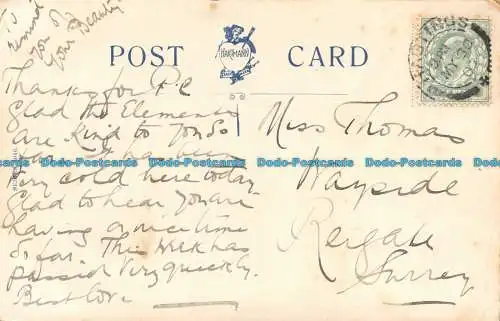 To
remind
you of
your Beauty
POST CARD
HASTINGS
Thanks for P.C
Glad the Elements
are kind to
very cold here today
Glad to hear you are
having a nice time
So far. This Week has
passed very quickly.
Best love
Miss Thomas
Wayside
Reigate
Surrey
Dodo-Postcards Dodo-Postcards Dodo-Postcards Dodo-Postcards